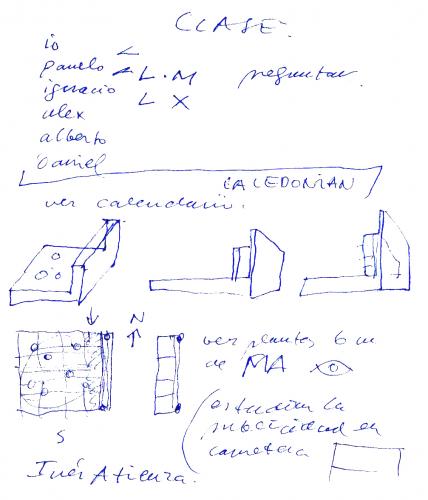 CLASE.
io L
panelo L L.M preguntar.
ignacio L X
alex
alberto
Daniel
CALEDONIAN
ver calendario.
N
ver plantas 6 m
de MA
S
estudiar la
publicidad en
carretera
Inés Atienza.